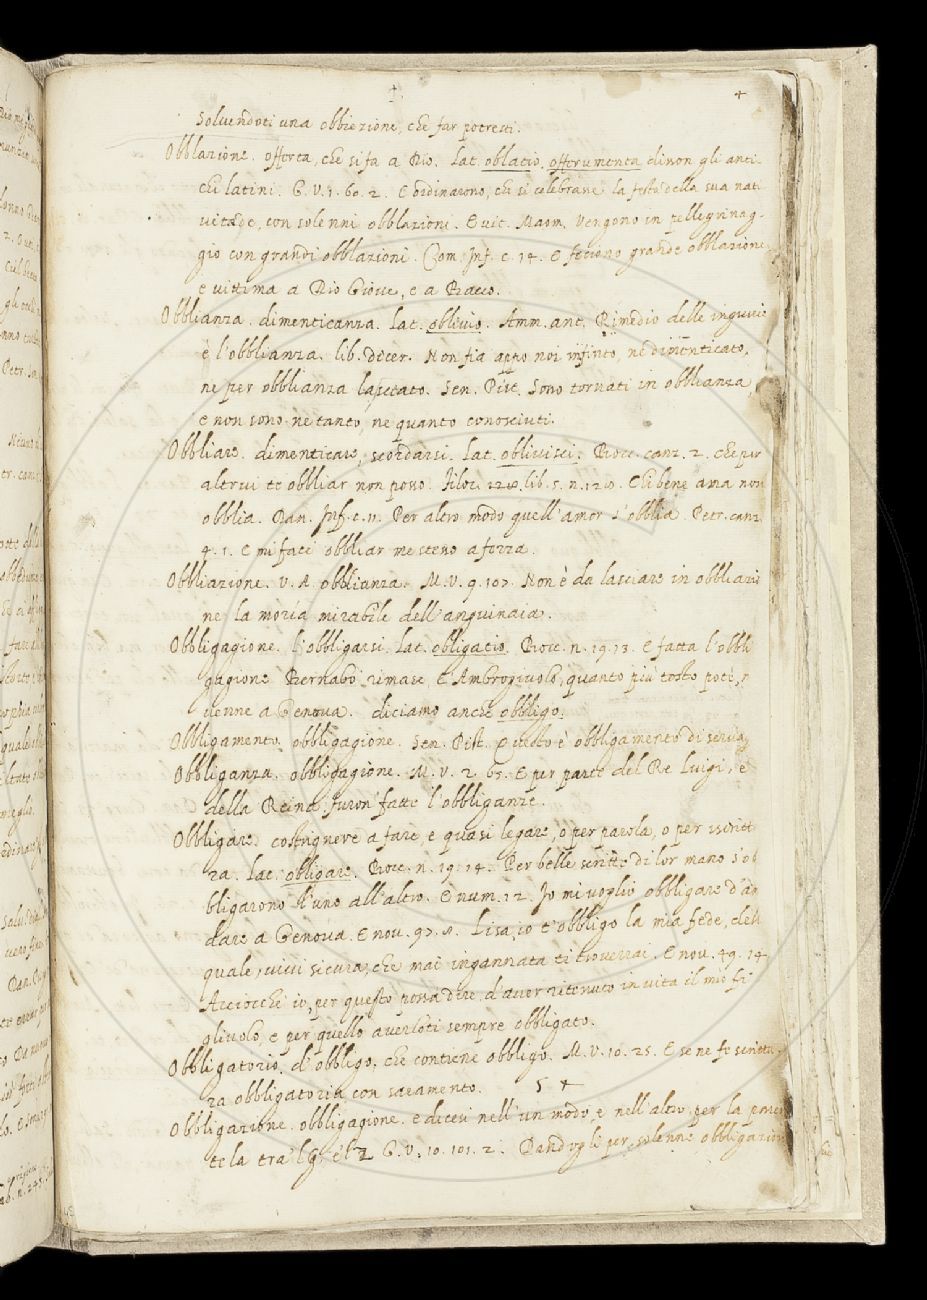 4
Soluendoti una obbiezione, che far potresti.
Obblazione. offerta, che si fa a Dio. Lat. oblatio. offerumenta disson gli anti
chi latini. G. V. 7. 60. 2. E ordinarono, che si celebrasse la festa della sua nati
uitade, con solenni obblazioni. E uit. Maom. Vengono in pellegrinag-
gio con grandi obblazioni. Com. Inf. c. 14. E feciono grande obblazione,
e uittima a Dio Gioue, e a Bacco.
Obblianza. dimenticanza. Lat. obliuio. Amm. ant. Rimedio delle ingiurie
è l'obblianza. lib. dicer. Non sia appo noi infinto, ne dimenticato,
ne per obblianza lasciato. Sen. Pist. Sono tornati in obblianza,
e non sono ne tanto, ne quanto conosciuti.
Obbliare. dimenticare, scordarsi. Lat. obliuisci. Bocc. canz. 2. che per
altrui te obbliar non posso. Filoc. lib. 5. n. Chi bene ama non
obblia. Dan. Inf. c. 11. Per altro modo quell'amor s'obblia. Petr. canz
4. 1. E mi face obbliar me stesso a forza.
Obbliazione. V. A. obblianza. M. V. 9. 107. Non è da lasciare in obbliazio
ne la moria mirabile dell'anguinaia.
Obbligagione. l'obbligarsi. Lat. obligatio. Bocc. n. 19. 13. E fatta l'obbli
gagione Bernabò rimase, E Ambrogiuolo, quanto più tosto potè,
uenne a Genoua. diciamo anche obbligo.
Obbligamento. obbligagione. Sen. Pist. Questo è obbligamento di
Obbliganza. obbligagione. M. V. 2. 65. E per parte del Re Luigi, e
della Reina furon fatte l'obbliganze.
Obbligare. costrignere a fare, e quasi legare, o per parola, o per iscritt
ra. Lat. obligare. Bocc. n. 19. 14. Per belle scritte di lor mano s'ob
bligarono l'uno all'altro. E num. 12. Io mi uoglio obbligare d'an
dare a Genoua. E nou. 97. Lisa, io t'obbligo la mia fede, dell
quale, uiui sicura, che mai ingannata ti trouerrai. E nou. 49. 14.
Acciocchè io, per questo possa dire d'auer ritenuto in uita il mio fi
gliuolo, e per quello auerloti sempre obbligato.
Obbligatorio. d'obbligo, che contiene obbligo. M. V. 10. 25. E se ne fe scrittu
ra obbligatoria con saramento. 5 4
Obbligazione. obbligagione. e dicesi nell'un modo, e nell'altro, per la
tela tra'l G, e'l Z G. V. 10. 101. 2. Dandogli per solenne obbligazion